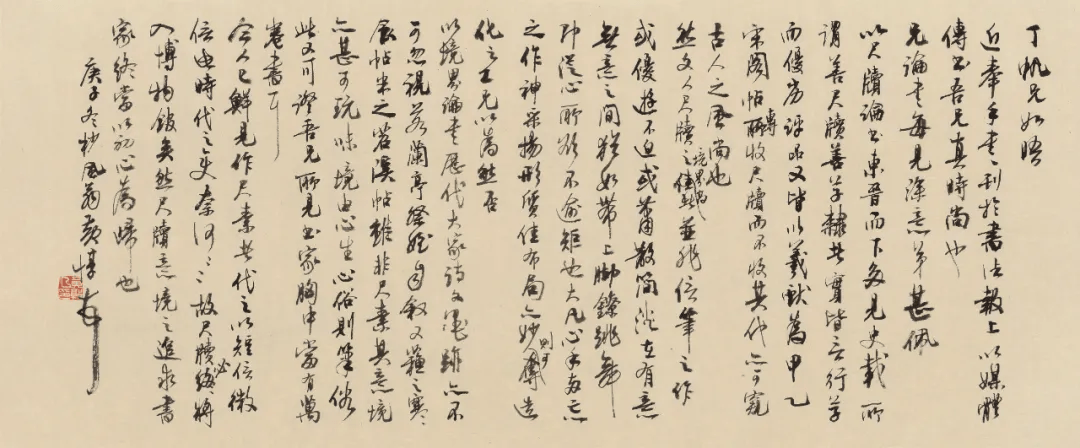 丁帆兄如晤
近奉手书刊於书法报上以媒体
传书吾兄真时尚也
兄论书每见深意弟甚佩
以尺牍论书东晋而下多见史载所
谓善尺牍善草隶其实皆言行草
而优劣评品又皆以羲献为甲乙
宋阁帖专所收尺牍而不收其他亦可窥
古人之风尚也
然文人尺牍之佳境界略或并非信笔之作
或优游不迫或萧散简淡在有意
无意之间犹如带上脚镣跳舞
即从心所欲不逾矩也大凡心手两忘
之作神采扬形质佳布局亦妙则可夺造
化之工兄以为然否
以境界论书历代大家诗文墨迹亦不
可忽视若兰亭祭侄自叙又苏之寒
食帖米之苕溪帖虽非尺素其意境
亦甚可玩味境由心生心俗则笔俗
此又可证吾兄所见书家胸中当有万
卷书耳
今人已鲜见作尺素者代之以短信微
信由时代之变奈何奈何故尺牍必终将
入博物馆矣然尺牍意境之追求书
家终当以初心为归也
庚子冬杪风翁黄惇